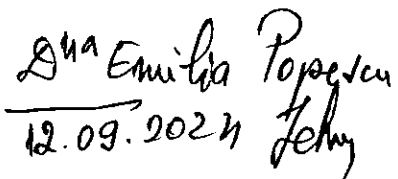 Dna Emilia Popescu
12.09.2024